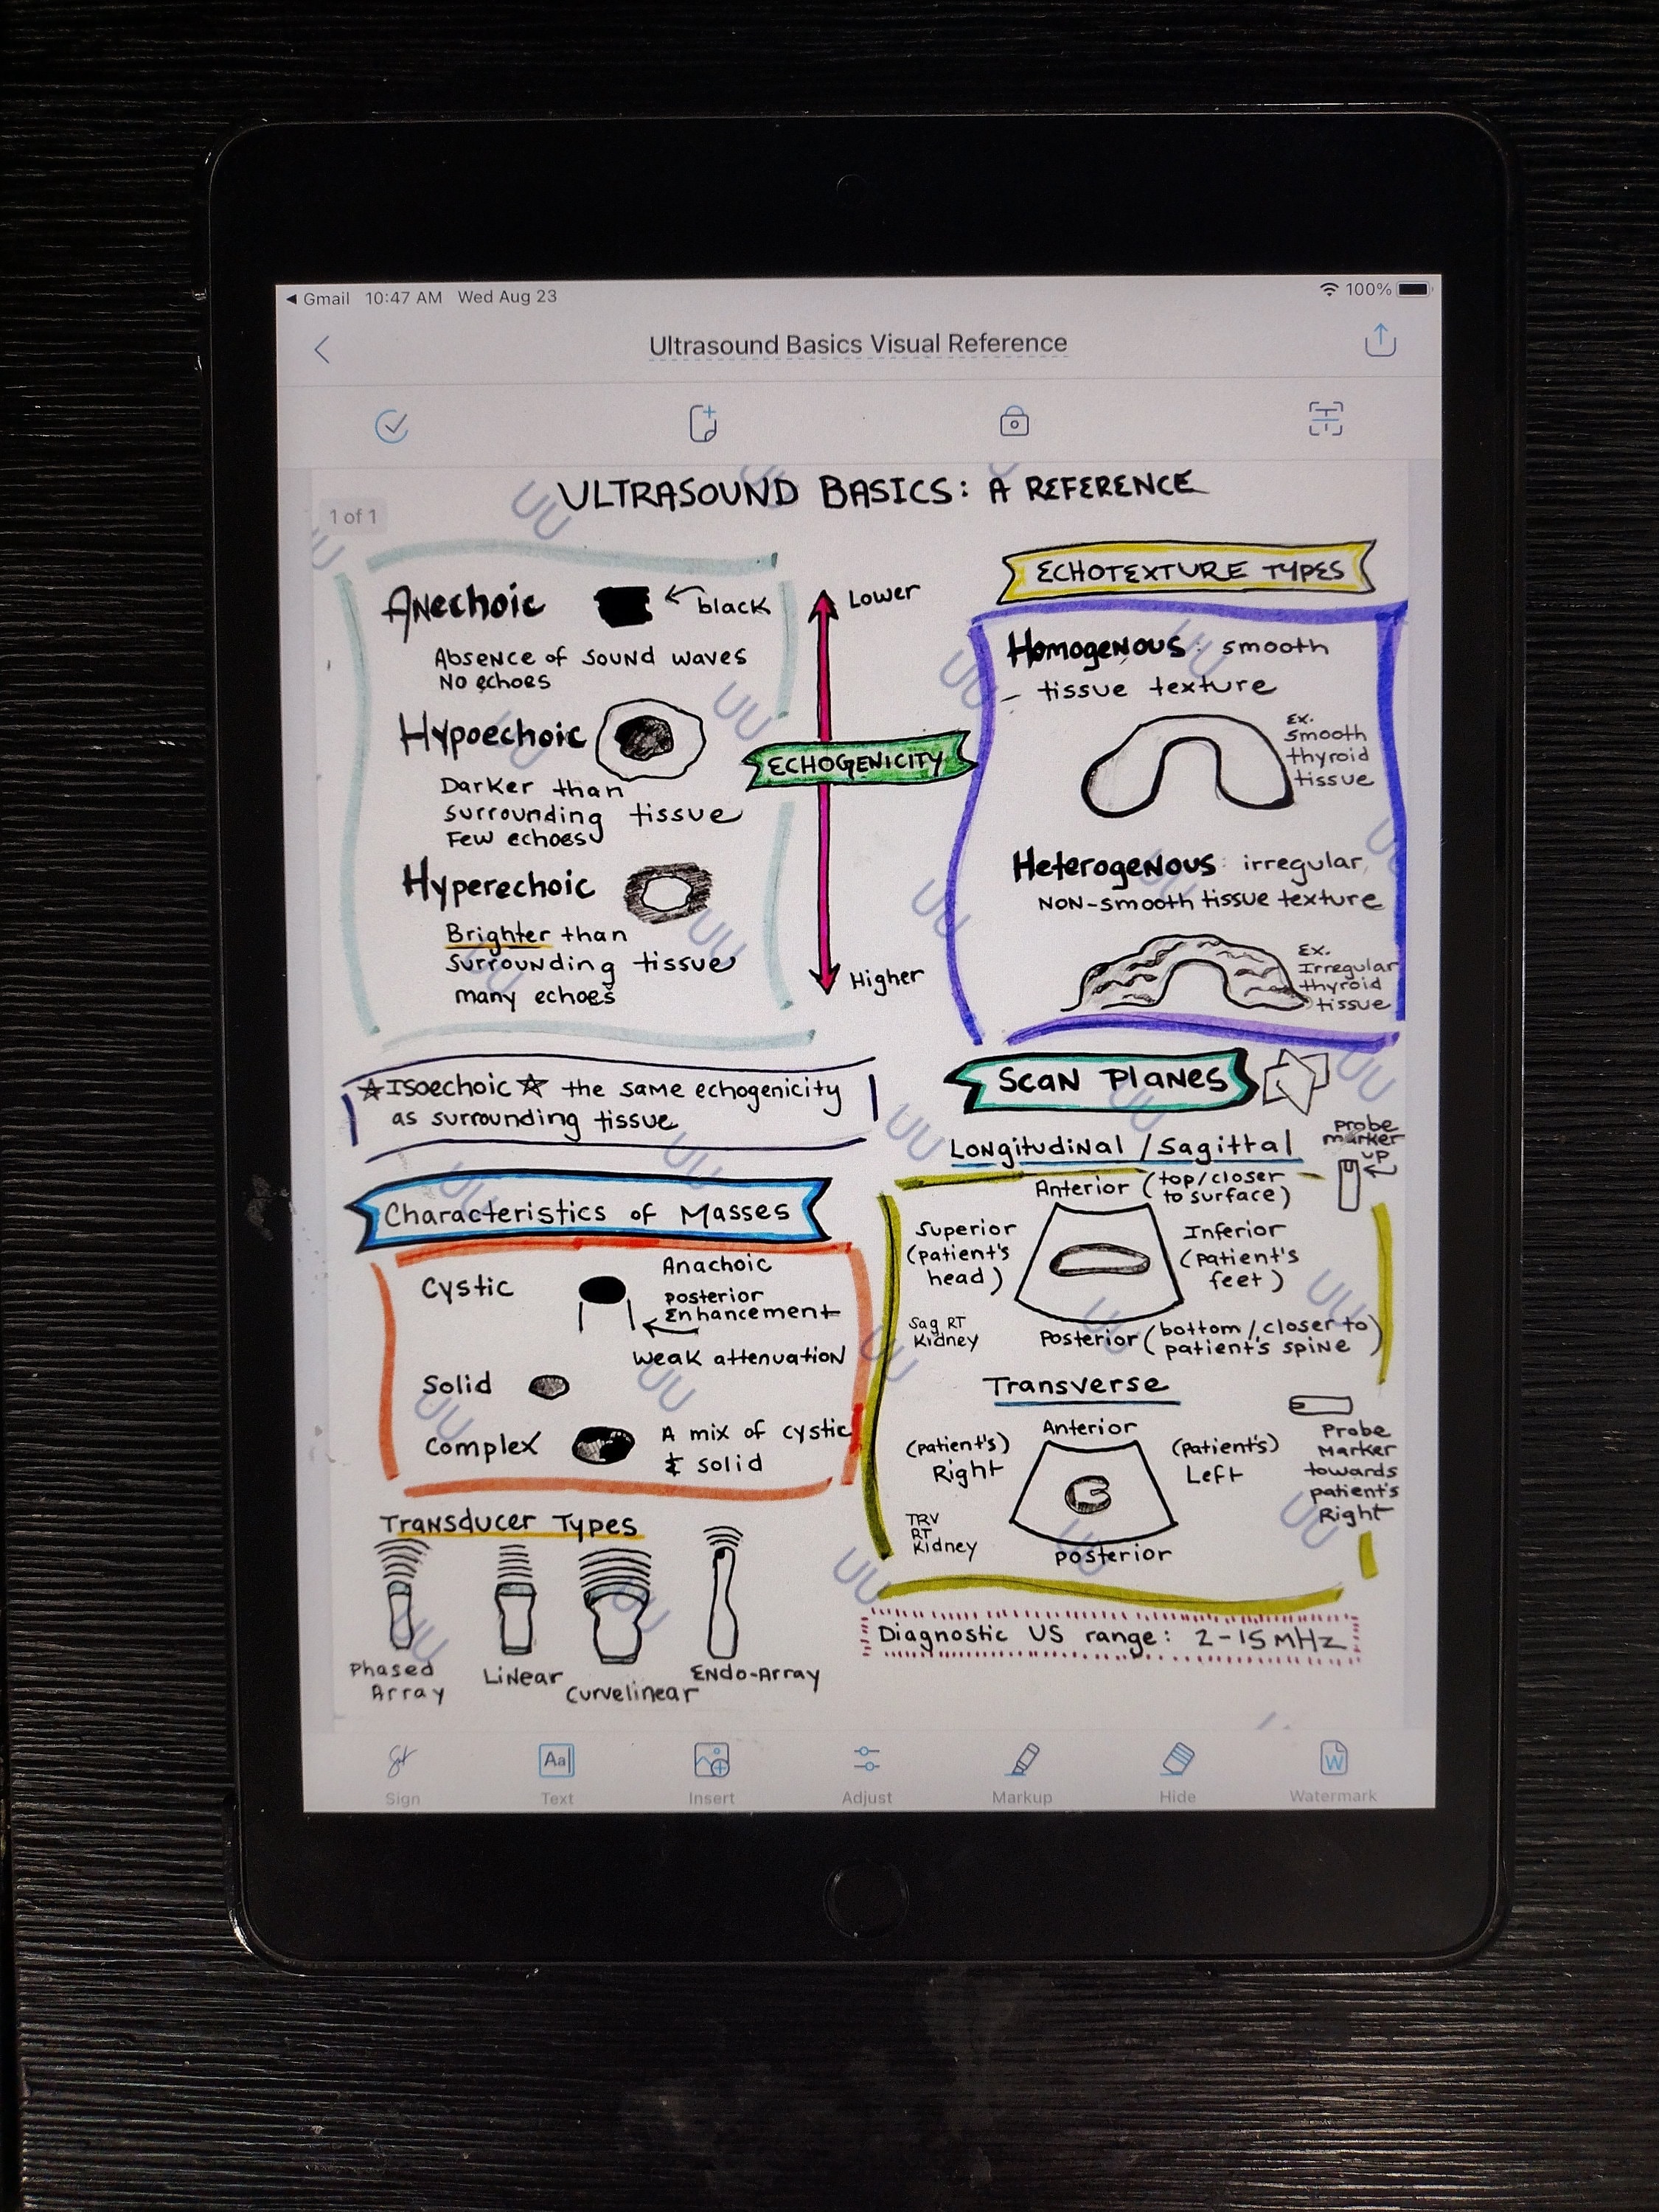 Gmail 10:47 AM Wed Aug 23
100%
Ultrasound Basics Visual Reference
1 of 1
ULTRASOUND BASICS: A REFERENCE
Anechoic
black
Absence of sound waves
No echoes
Hypoechoic
Darker than
surrounding tissue
Few echoes
Hyperechoic
Brighter than
surrounding tissue
many echoes
Lower
ECHOGENICITY
Higher
ECHOTEXTURE TYPES
Homogenous: smooth
tissue texture
Ex.
smooth
thyroid
tissue
Heterogenous: irregular,
NON-smooth tissue texture
Ex.
Irregular
thyroid
tissue
☆Isoechoic☆ the same echogenicity
as surrounding tissue
Characteristics of Masses
Cystic
Anachoic
posterior
Enhancement
weak attenuation
Solid
Complex
A mix of cystic
& solid
Transducer Types
Phased
Array
Linear
Curvelinear
Endo-Array
Scan Planes
Longitudinal/Sagittal
Probe
marker
up
Anterior (top/closer
to surface)
Superior
(patient's
head)
Inferior
(patient's
feet)
Sag RT
Kidney
Posterior (bottom/closer to
patient's spine)
Transverse
Anterior
(patient's)
Right
(patient's)
Left
Probe
Marker
towards
patient's
Right
TRV
RT
Kidney
posterior
Diagnostic US range: 2-15 MHz
UU UU UU UU UU UU UU UU UU UU UU UU UU UU UU UU UU UU UU UU UU UU UU UU UU
Sign
Text
Insert
Adjust
Markup
Hide
Watermark